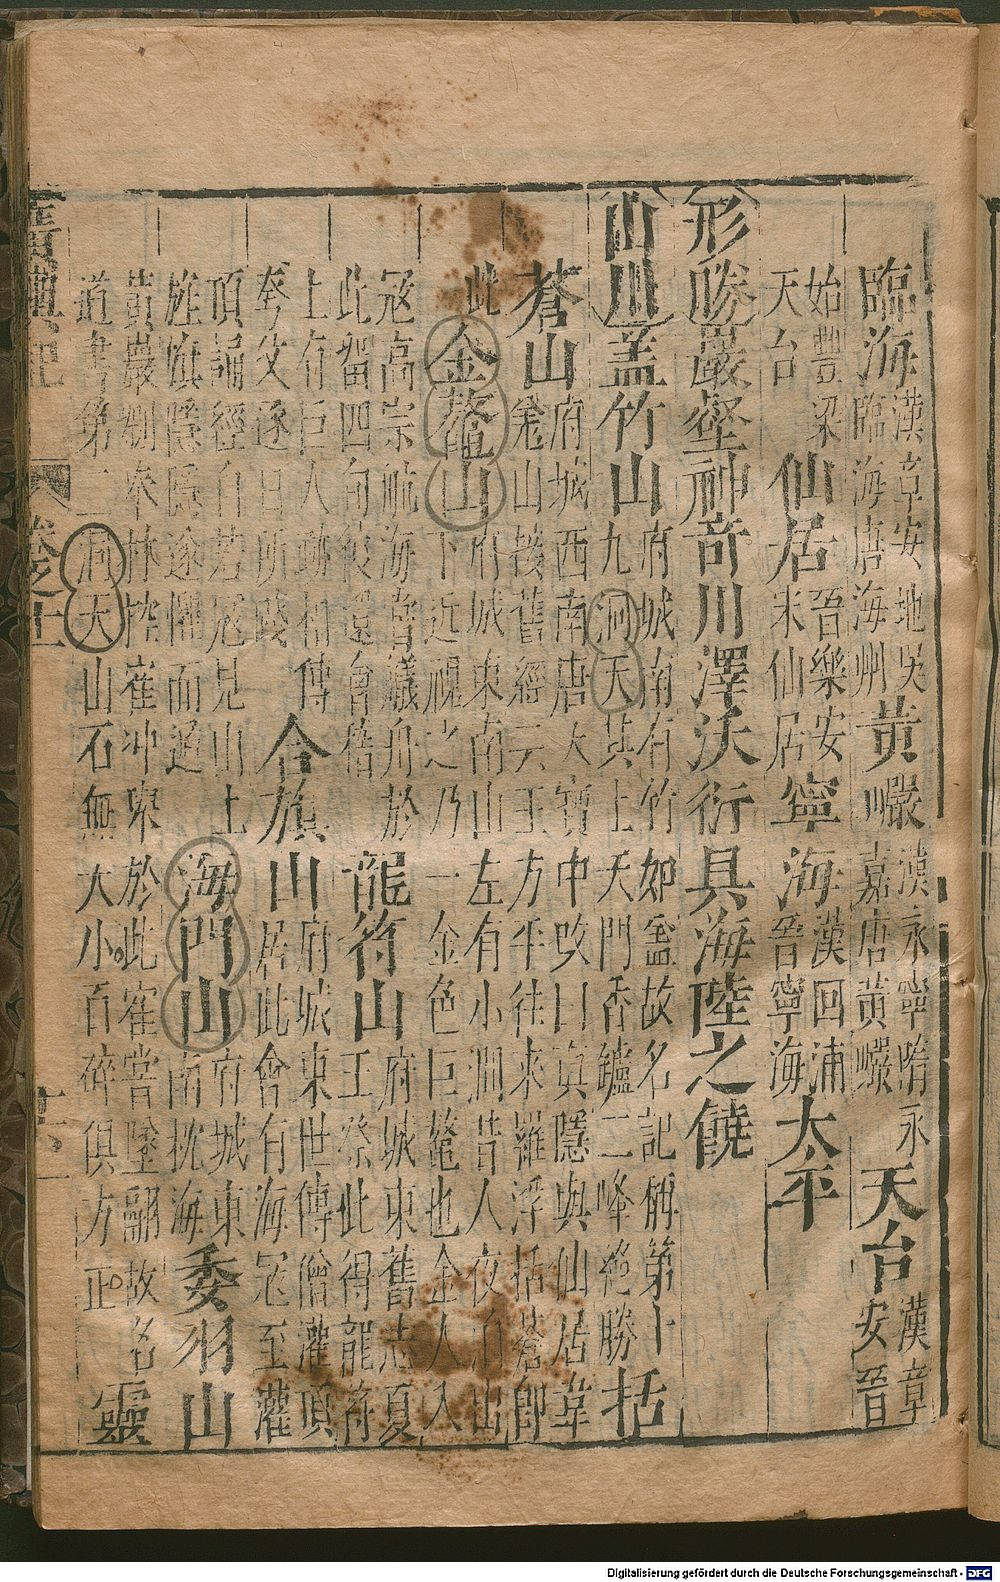 臨海 漢章安地吳
臨海唐海州
黃巖 漢永寧隋永
嘉唐黃巖
天台 漢章
安晉
始豐梁
天台
仙居 晉樂安
宋仙居
寧海 漢回浦
晉寧海
太平
形勝 巖壑神奇川澤沃衍具海陸之饒
山川 蓋竹山 府城南有竹如蓋故名記稱第十
九洞天其上天門香鑪二峰絕勝
括
蒼山 府城西南唐天寶中改曰真隱與仙居韋
羌山接舊經云王方平往來羅浮括蒼即
此 金鰲山 府城東南山左有小澗昔人夜泊山
下近視之乃一金色巨鰲也金人入
寇高宗航海嘗艤舟於
此留四旬後還會稽
龍符山 府城東舊志夏
王祭此得龍符
上有巨人跡相傳
夸父逐日所踐
合旗山 府城東世傳僧灌頂
居此會有海寇至灌
頂誦經自若寇見山上
旌旗隱隱遂懼而遁
海門山 府城東
南枕海
委羽山
黃巖劉奉林控隺沖舉於此隺嘗墜翮故名
道書第二洞天山石無大小百碎俱方正
靈
廣輿記 卷之十一
Digitalisierung gefördert durch die Deutsche Forschungsgemeinschaft - DFG